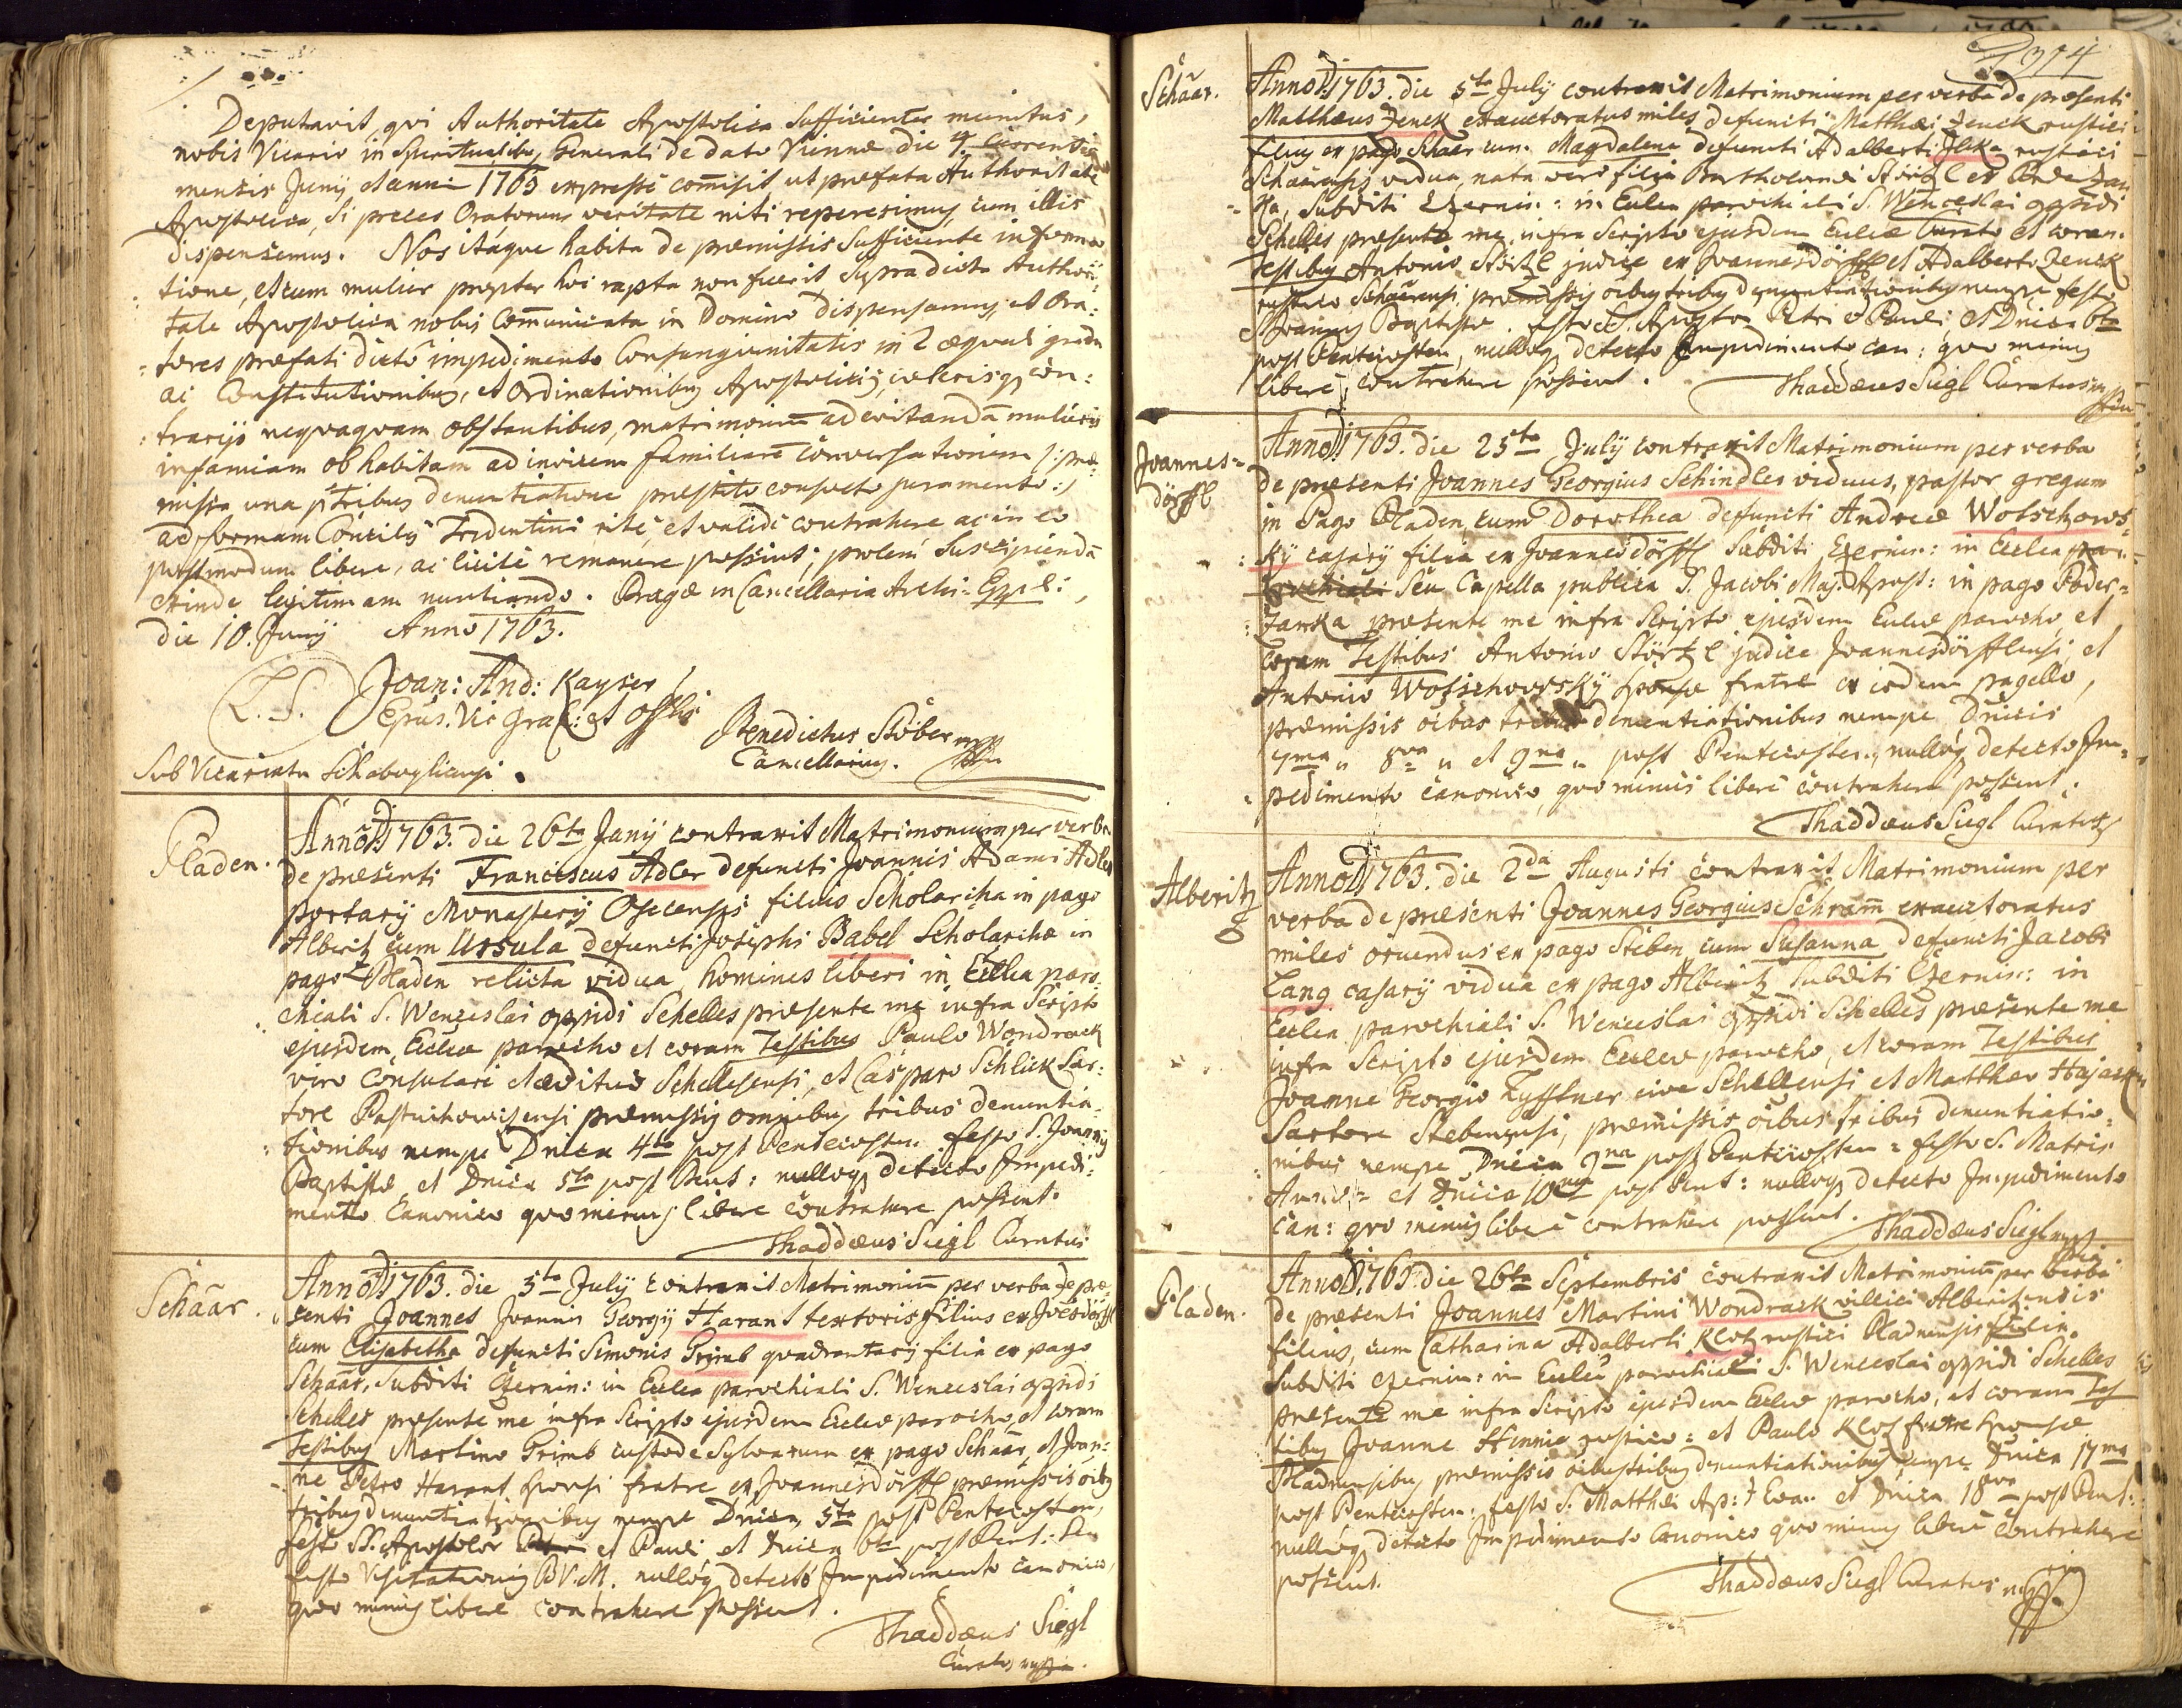 Deputavit, qvi Authoritate Apostolica Sufficienter munitus,
nobis Vicario in Spiritualibus Generali de dato Viennæ die 4. currentis
mensis Junÿ et anni 1763 expresse com̄isit ut præfata Authoritate
Apostolica, Si preces Oratorum veritate niti repererimus, cum illis
dispensemus. Nos itaque habita de præmissis Sufficiente informa
tione, et cum mulier propter hoc rapta non fuerit Supradicta Authori
tate Apostolica nobis Com̄unicata in Domino dispensamus, et Ora:
tores præfati dicto impedimento Consangvinitatis in 2 æquali gradu
ac Constitutionibus, et Ordinationibus Apostolicis, cæterisq, con:
trarÿs neqvaqvam obstantibus, matrimonium ad evitandā mulieris
infamiam ob habitam ad invicem familiarē conversationem /: præ:
missa una pro tribus denuntiatione præstito consveto juramento :/
ad formam Concilÿ Tridentini rite, et valide contrahere ac in eo
postmodum libere, ac licite remanere possint; prolem Suscipiendā
exinde legitimam nuntiando. Pragæ in Cancellaria Archi-Eppli:
die 10. Junÿ Anno 1763.
L. S. Joan: And: Kayser
Epūs. Vic: Gral: et Offlis
Benedictus Stöber mpp
Cancellarius.
Sub Vicariatu
Pladen. Anno D. 1763. die 26ta Junÿ contraxit Matrimonium per verba
de præsenti Franciscus Adler defuncti Joannis Adami Adler
portarÿ Monasterÿ Osecensis filius Scholarcha in pago
Alberitz cum Ursula defuncti Josephi Babel Scholarcha in
pago Pladen relicta vidua, homines liberi in Ecclia paro:
chiali S. Wenceslai oppidi Schelles præsente me infra Scripto
ejusdem Eccliæ parocho et coram Testibus Paulo Wondrack
viro Consulari et ædituo Schellesensi, et Casparo Schlick Sar:
tore præmissis omnibus tribus denuntia:
tionibus nempe Dnica 4ta post Pentecosten. festo S. Joannis
Baptistæ et Dnica 5ta post Pent: nulloq, detecto Impedi:
mento Canonico quo minus libere contrahere possent.
Thaddæus Siegl Curatus
Schaar. Anno D. 1763. die 5ta July contraxit Matrimoniū per verba de præ
senti Joannes Joannis Georgÿ Harant textoris filius ex Joēsdörffl
cum Elisabetha defuncti Simonis Grimb quadrantarÿ filia ex pago
Schaar, Subditi Czernin: in Ecclia parochiali S. Wenceslai oppidi
Schelles præsente me infra Scripto ejusdem Eccliæ parocho, et coram
Testibus Martino Grimb custode Sylvarum ex pago Schaar, et Joan:
ne Petro Harant Sponsi fratre ex Joannesdörffl præmissis oibus
tribus denuntiationibus nempe Dnica 5ta post Pentecosten,
festo SS. Apostolor̄ Petri et Pauli, et Dnica 6ta post Pent: seu
festo Visitationis B.V.M. nulloq, detecto Impedimento canonico,
quo minus libere contrahere possent.
Thaddæus Siegl
Curatus mppa.
374
Schaar. Anno D. 1763. die 5ta July contraxit Matrimonium per verba de præsenti
Matthæus Zenck exauctoratus miles defuncti Matthæi Zenck rustici
filius ex pago Schaar cum Magdalena defuncti Adalberti Jlka rustici
Schaarensis vidua, nata vero filia Bartholomæi Störtzl ex Poderzan
ka, Subditi Czernin: in Ecclia parochiali S. Wenceslai oppidi
Schelles præsente me infra Scripto ejusdem Eccliæ Curato et coram
Testibus Antonio Störtzl judice ex Joannesdörffl et Adalberto Zenck
rustico Schaarensi, præmissis oibus tribus denuntiationibus nempe festo
S. Joannis Baptistæ. festo SS. Apostol: Petri & Pauli, et Dnica 6ta
post Pentecosten, nulloq, detecto Impedimento can: quo minus
libere contrahere possent. Thaddæus Siegl Curatus mpp
Joannes=
dörffl Anno D. 1763. die 25ta July contraxit Matrimonium per verba
de præsenti Joannes Georgius Schindler viduus, pastor gregum
in Pago Pladen, cum Dorothea defuncti Andreæ Wotschows:
:ky casarÿ filia ex Joannesdörffl Subditi Czernin: in Ecclia pa:
rochiali Seu Capella publica S. Jacobi Maj: Apost: in pago Poder=
:zanka præsente me infra Scripto ejusdem Eccliæ parocho, et
coram Testibus Antonio Störtzl judice Joannesdörfflensi, et
Antonio Wotschowsky Sponsæ fratre ex eodem pagello,
præmissis oibus tribus denuntiationibus nempe Dnicis
7ma „ 8va „ et 9na „ post Pentecosten, nulloq, detecto Im=
pedimento canonico, quo minus libere contrahere possent.
Thaddæus Siegl Curatus
Alberitz Anno D. 1763. die 2da Augusti contraxit Matrimonium per
verba de præsenti Joannes Georgius Schram̄ exauctoratus
miles oriundus ex pago Steben cum Susanna defuncti Jacobi
Lang casarÿ vidua ex pago Alberitz Subditi Czernin: in
Ecclia parochiali S. Wenceslai oppidi Schelles præsente me
infra Scripto ejusdem Eccliæ parocho, et coram Testibus
Joanne Georgio Tyfftner cive Schellensi et Matthæo
Sartore Stebenensi, præmissis oibus tribus denuntiatio=
nibus nempe Dnica 9na post Pentecosten = festo S. Matris
Annæ = et Dnica 10ma post Pent: nulloq, detecto Impedimento
can: quo minus libere contrahere possent. Thaddæus Siegl mpp
Pladen. Anno D. 1763. die 26ta Septembris contraxit Matrimoniū per verba
de præsenti Joannes Martini Wondrack villici Alberitzensis
filius, cum Catharina Adalberti Klotz rustici Pladnensis filia.
Subditi Czernin: in Ecclia parochiali S. Wenceslai oppidi Schelles
præsente me infra Scripto ejusdem Eccliæ parocho, et coram Tes
tibus Joanne Hennig rustico = et Paulo Klotz fratre Sponsæ
Pladnensibus præmissis oibus tribus denuntiationibus nempe Dnica 17ma
post Pentecosten: festo S. Matthæi Ap: & Evan: et Dnica 18va post Pent:
nulloq, detecto Impedimento Canonico quo minus libere contrahere
possent. Thaddæus Siegl Curatus mpp